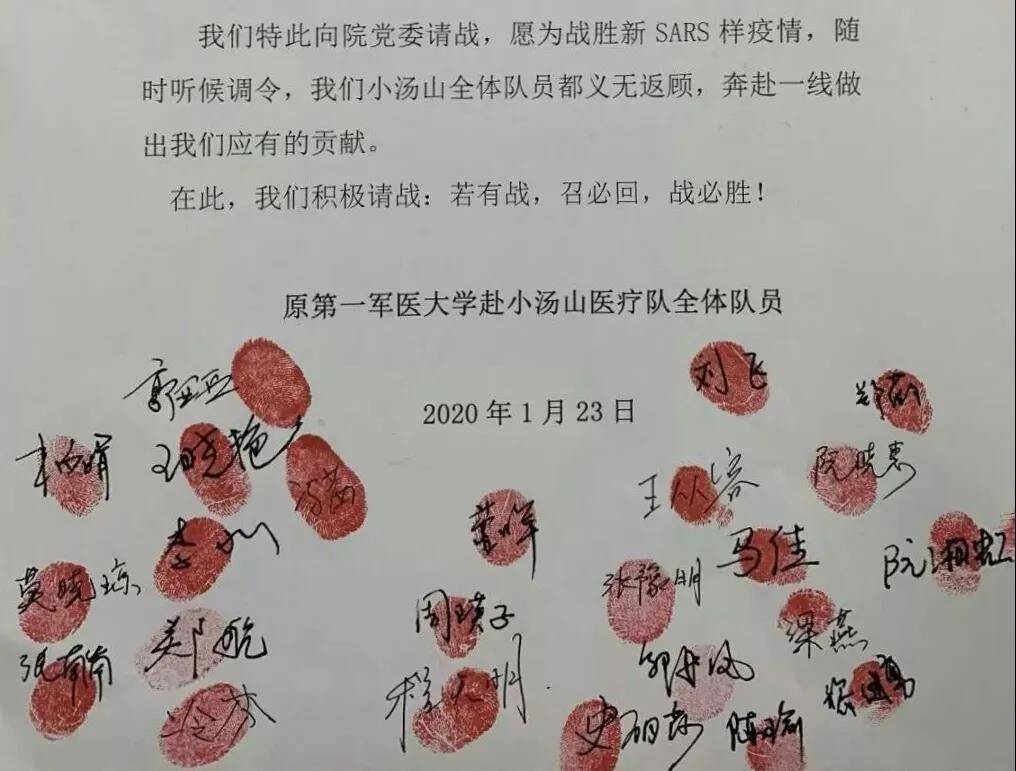 我们特此向院党委请战，愿为战胜新 SARS 样疫情，随
时听候调令，我们小汤山全体队员都义无返顾，奔赴一线做
出我们应有的贡献。
在此，我们积极请战：若有战，召必回，战必胜！
原第一军医大学赴小汤山医疗队全体队员
2020 年 1 月 23 日
刘飞
郭亚亚
王晓艳
阮晓惠
李小川
马佳
张豫明
阮湘虹
莫晓琼
周瑛子
梁燕
郑航
张南南
冷芬
陈瑜